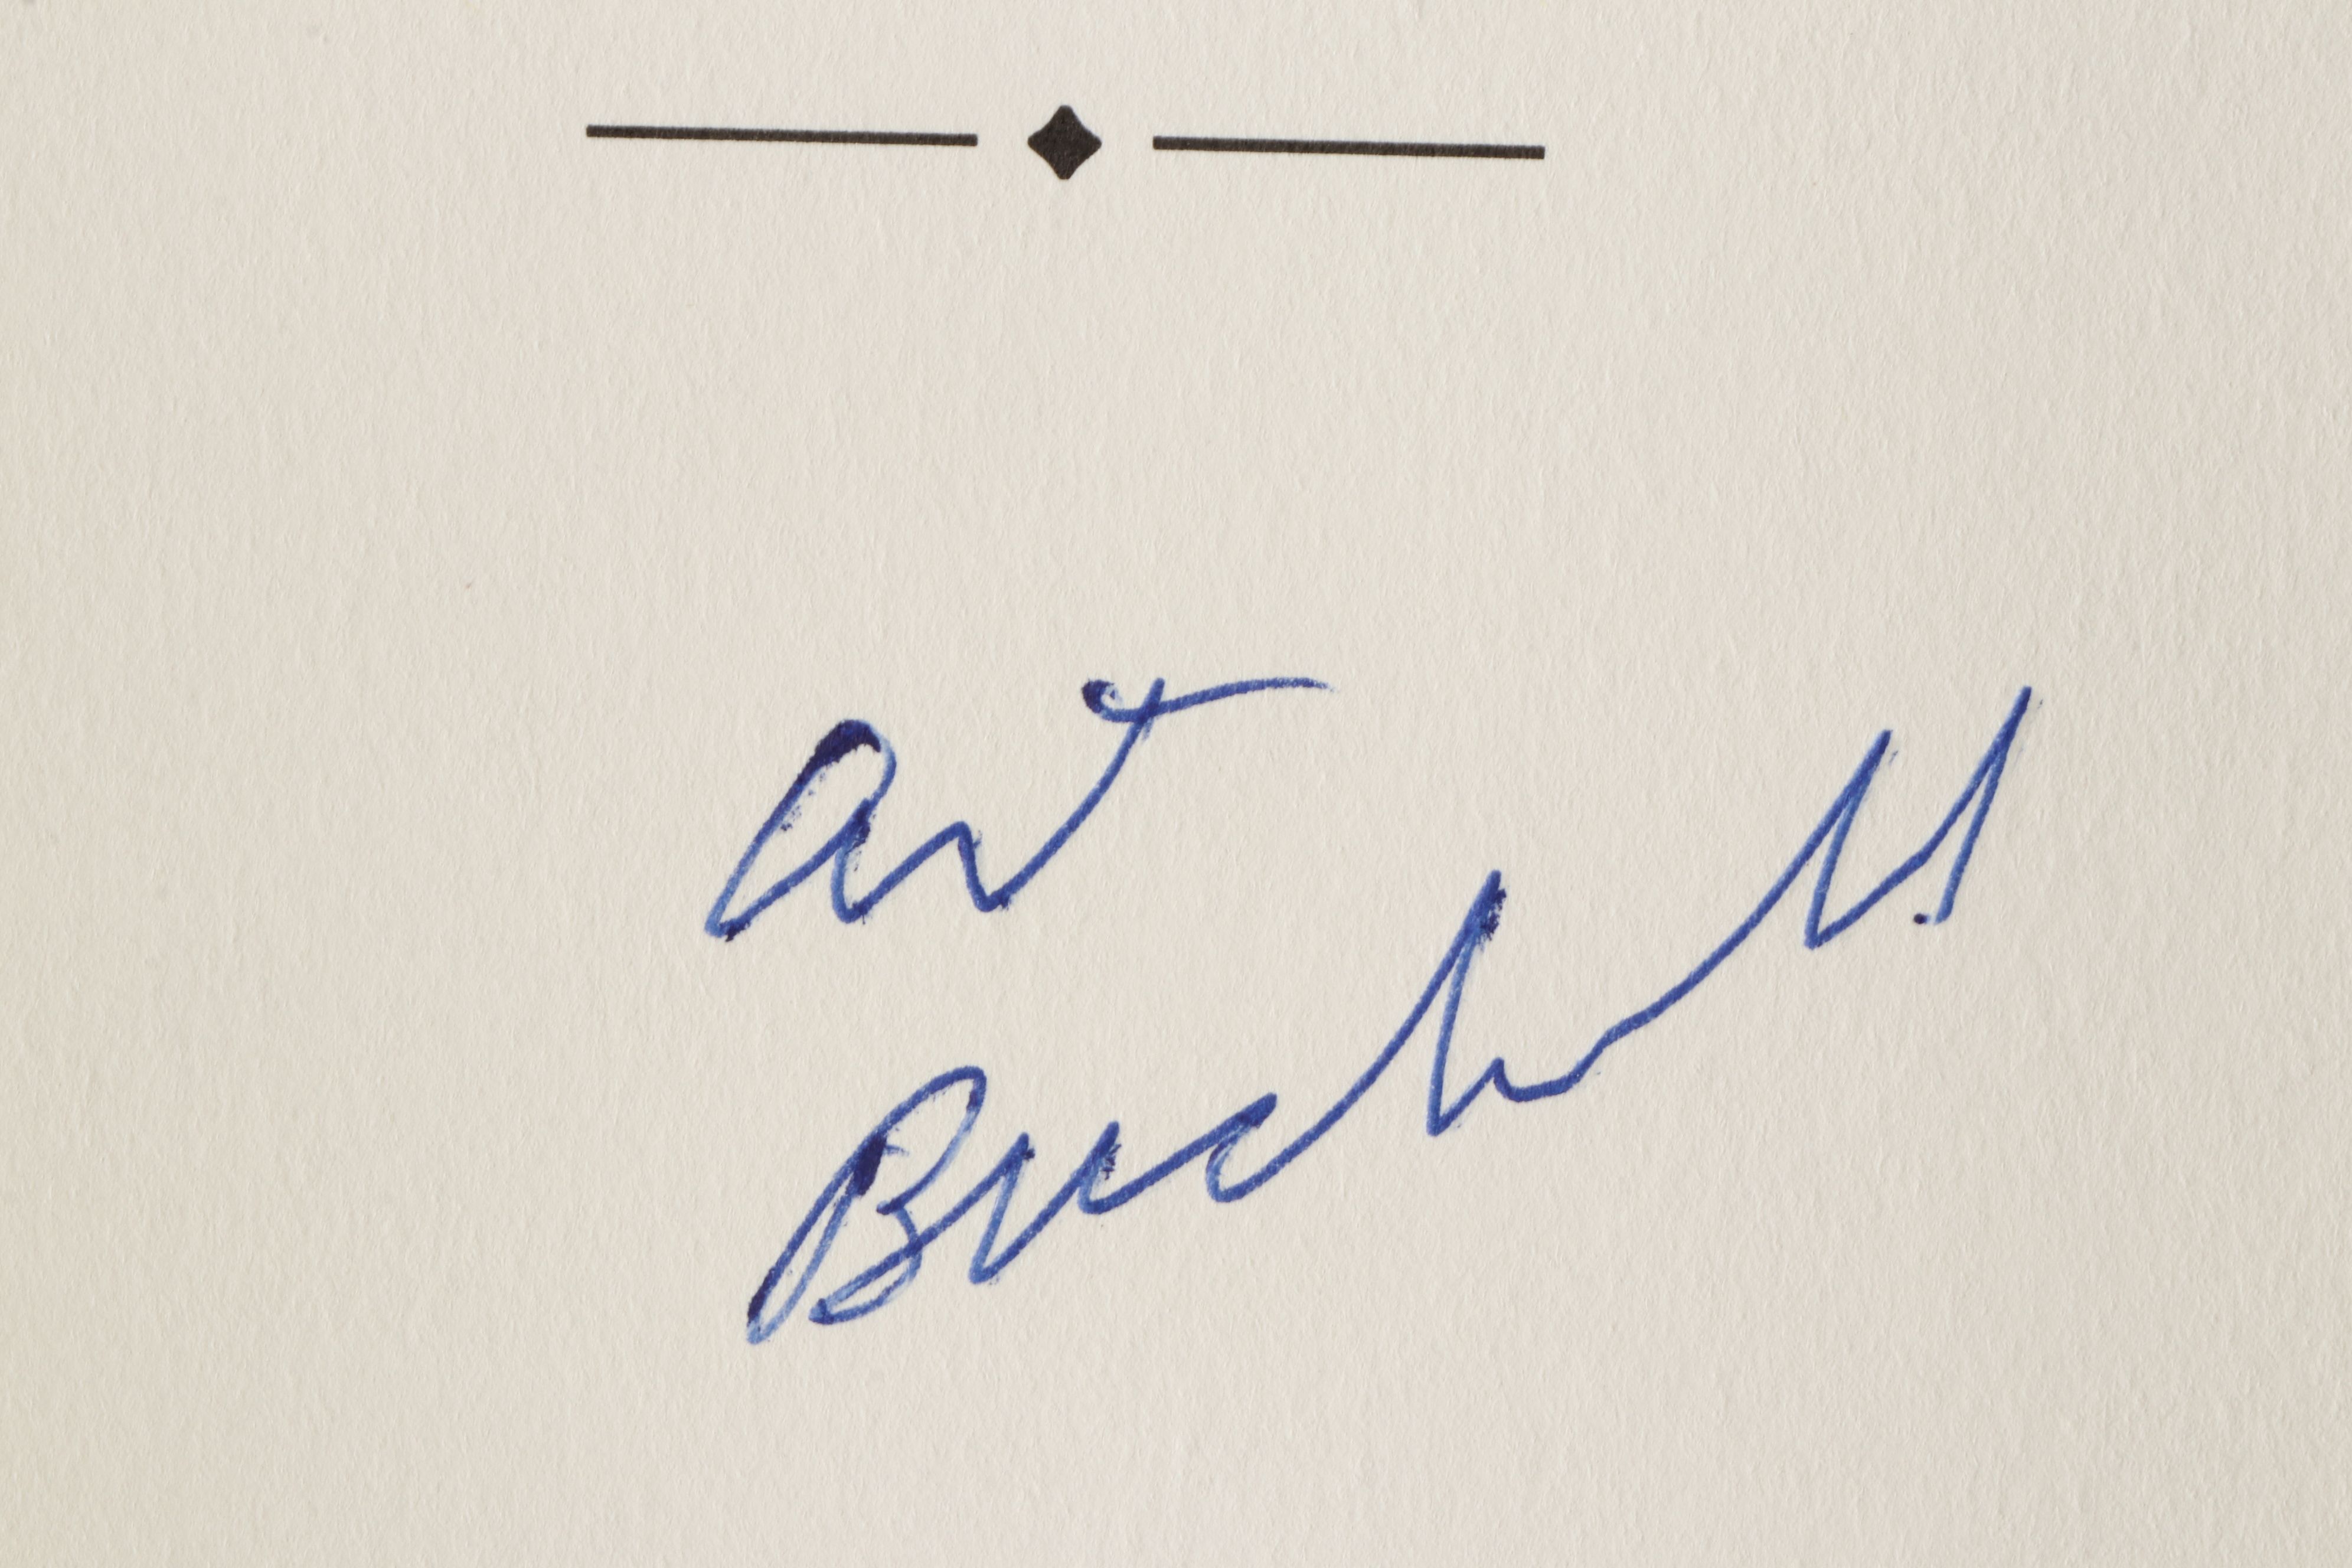 Art
Buchwald